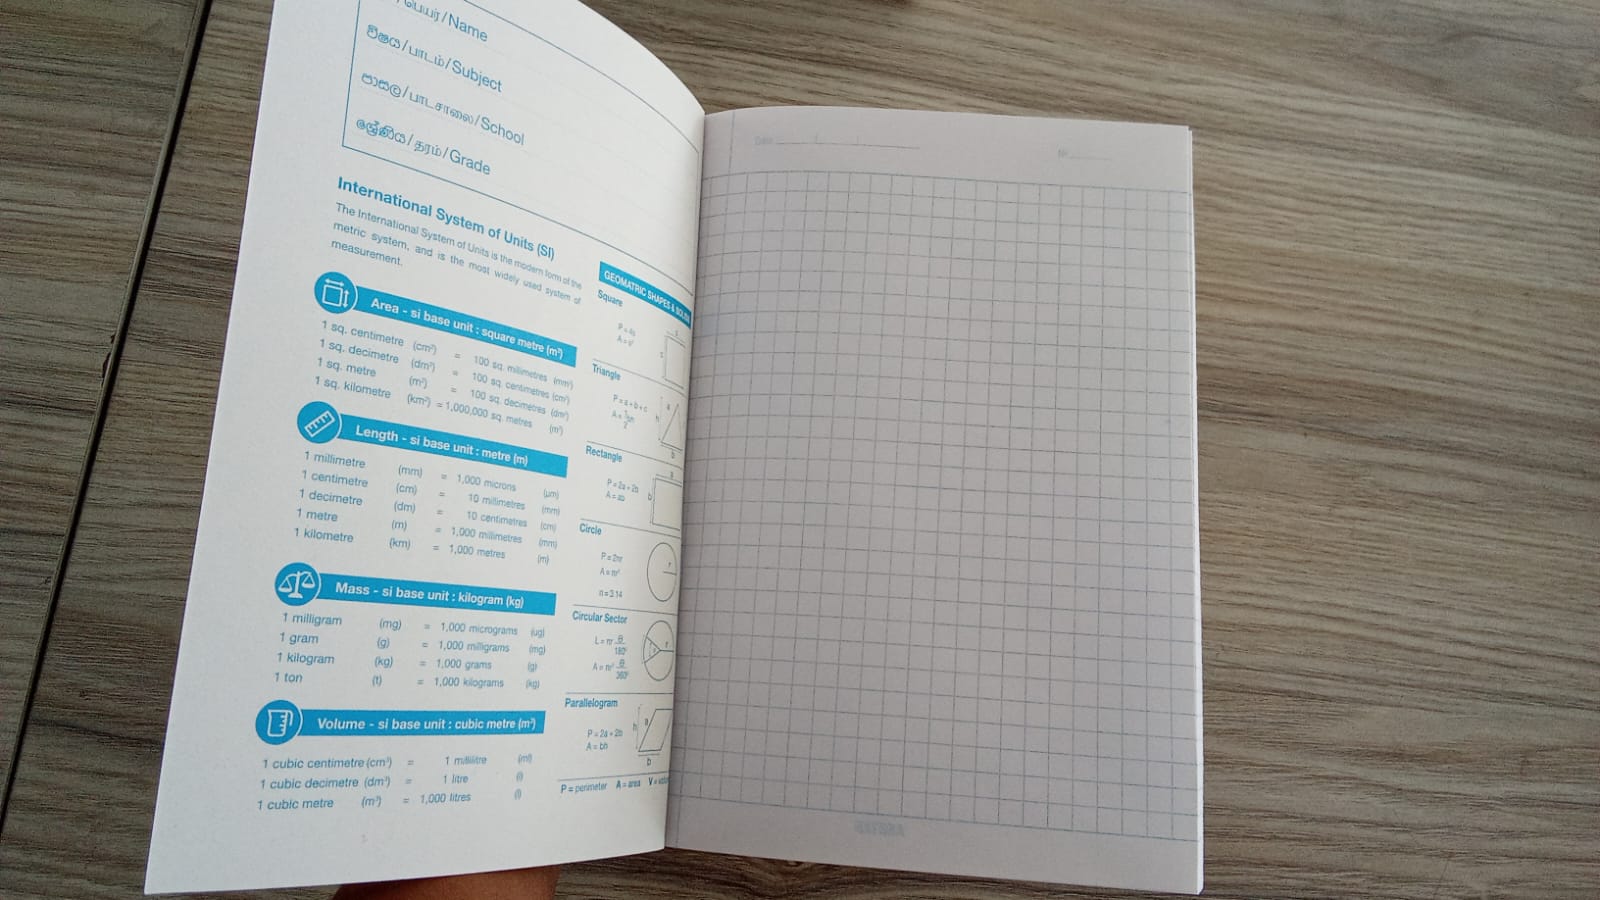 பெயர்/Name
විෂය/பாடம்/Subject
පාසල/பாடசாலை/School
ශ්‍රේණිය/தரம்/Grade
International System of Units (SI)
The International System of Units is the modern form of the
metric system, and is the most widely used system of
measurement.
Area - si base unit : square metre (m²)
1 sq. centimetre (cm²) = 100 sq. millimetres (mm²)
1 sq. decimetre (dm²) = 100 sq. centimetres (cm²)
1 sq. metre (m²) = 100 sq. decimetres (dm²)
1 sq. kilometre (km²) = 1,000,000 sq. metres (m²)
Length - si base unit : metre (m)
1 millimetre (mm) = 1,000 microns (µm)
1 centimetre (cm) = 10 millimetres (mm)
1 decimetre (dm) = 10 centimetres (cm)
1 metre (m) = 1,000 millimetres (mm)
1 kilometre (km) = 1,000 metres (m)
Mass - si base unit : kilogram (kg)
1 milligram (mg) = 1,000 micrograms (ug)
1 gram (g) = 1,000 milligrams (mg)
1 kilogram (kg) = 1,000 grams (g)
1 ton (t) = 1,000 kilograms (kg)
Volume - si base unit : cubic metre (m³)
1 cubic centimetre (cm³) = 1 millilitre (ml)
1 cubic decimetre (dm³) = 1 litre (l)
1 cubic metre (m³) = 1,000 litres (l)
GEOMATRIC SHAPES &
Square
P = 4s
A = s²
s
s
Triangle
P = a + b + c
A = 1bh
2
h
a
b
Rectangle
P = 2a + 2b
A = ab
a
b
Circle
P = 2πr
A = πr²
π = 3.14
r
Circular Sector
L = πr θ
180°
A = πr² θ
360°
r
Parallelogram
P = 2a + 2b
A = bh
h
a
b
P = perimeter A = area V =
Date